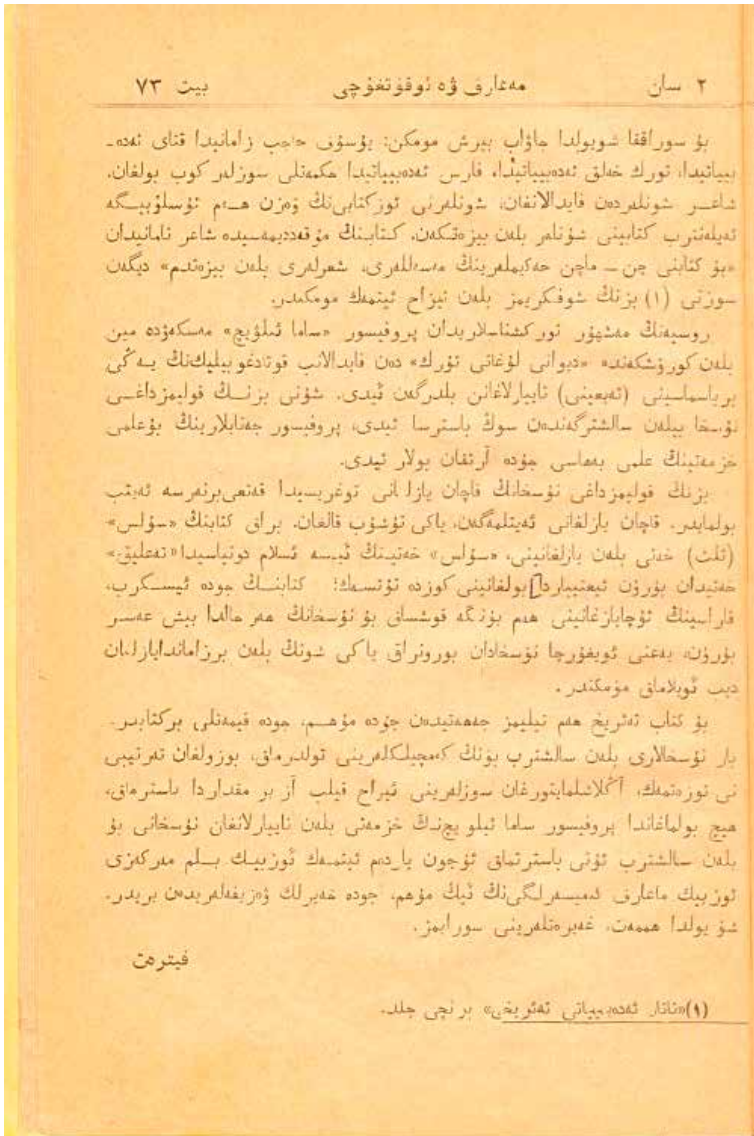 ۲ سان مەعارف ۋە ئوقۇتغۇچى بيت ۷۳
بۇ سوراققا شويولدا جاۋاب بيرش مومكن: يۇسۇف حاجب زامانيدا قتاى ئەدە-
بيياتيدا، تورك خەلق ئەدەبيياتيدا، فارس ئەدەبيياتيدا حكمەتلى سوزلەر كوب بولغان.
شاعـر شونلەردەن فايدالانغان، شونلەرنى ئوزكتابىنڭ ۋەزن هـەم ئۇسلۇبيـگە
ئەيلەنترب كتابينى شۇنلەر بلەن بيزەتكەن. كـتابنڭ مۇقەدديمەسيدە شاعر تامانيدان
«بۇ كتابنى چن ـ ماچن حەكيملەرينڭ مەسەللەرى، شعرلەرى بلەن بيزەتدم» ديگەن
سوزنى (۱) بزنڭ شوفكريمز بلەن ئيزاح ئيتمەك مومكندر.
روسيەنڭ مەشهۇر توركشناسلاريدان پروفيسور «ساما ئىلۋيچ» مەسكەۋدە مين
بلەن كورۇشكەندە «ديوانى لۇغاتى تۇرك» دەن فايدالانب قوتادغو بيليك‌نڭ يـەڭى
برباسماسينى (تەبعينى) تاييارلاغانن بلدرگەن ئيدى. شۇنى بزنــڭ قوليمزداغــى
نۇسخا بيلەن سالشترگەندەن سوڭ باسترسا ئيدى، پروفيسور جەنابلارينڭ بۇعلمى
خزمەتينڭ علمى بەهاسى جۇدە آرتقان بولار ئيدى.
بزنڭ قوليمزداغى نۇسخانڭ قاچان يازلـانى توغريسيدا قەتعى‌برنەرسە ئەيتب
بولمايدر. قاچان يازلغانى ئەيتلمەگەن، ياكى تۇشۇب قالغان. براق كتابنڭ «سۇلس»
(ثلث) خەتى بلەن يازلغانينى، «سۇلس» خەتينـڭ ئيـسە ئسلام دونياسيدا «تەعليق»
خەتيدان بۇرۇن ئيعتيياردا بولغانينى كوزدە تۇتسـەك؛ كتابنــڭ جودە ئيسـكرب،
قاراسينڭ ئۇچايازغانينى هەم بۇنـگە قوشساق بۇ نۇسخانڭ هەر حالدا بيش عەسـر
بۇرۇن، يەعنى ئويغۇرچا نۇسخادان بورونراق ياكى شونڭ بلەن برزاماندايازلـان
ديب ئويلاماق مۇمكندر.
بۇ كتاب تەئريخ هەم تيليمز جەهەتيدەن جۇدە مۇهـم، جودە قيمەتلى بركتابدر.
بار نۇسخالارى بلەن سالشترب بونڭ كەمچيلـكلەرينى تولدرماق، بوزولغان تەرتيبى
نى توزەتمەك، آڭلاشلمايتورغان سوزلەرينى ئيزاح قيلب آز بر مقداردا باسترماق،
هيچ بولماغاندا پروفيسور ساما ئيلو يچ‌نـڭ خزمەتى بلەن تاييارلانغان نۇسخانى بۇ
بلەن سالشترب ئۇنى باسترتماق ئۇچون ياردەم ئيتمـەك ئوزبيـك بـلم مەركەزى
ئوزبيك ماعارف كەميسەرلـگى‌نڭ ئيڭ مۇهم، جودە خەيرلك ۋەزيفەلەريدەن بريدر.
شۇ يولدا هممەت، غەيرەتلەرينى سورايمز.
فيترەت
(۱) «تاتار ئەدەبيياتى تەئريخى» برنچى جلد.